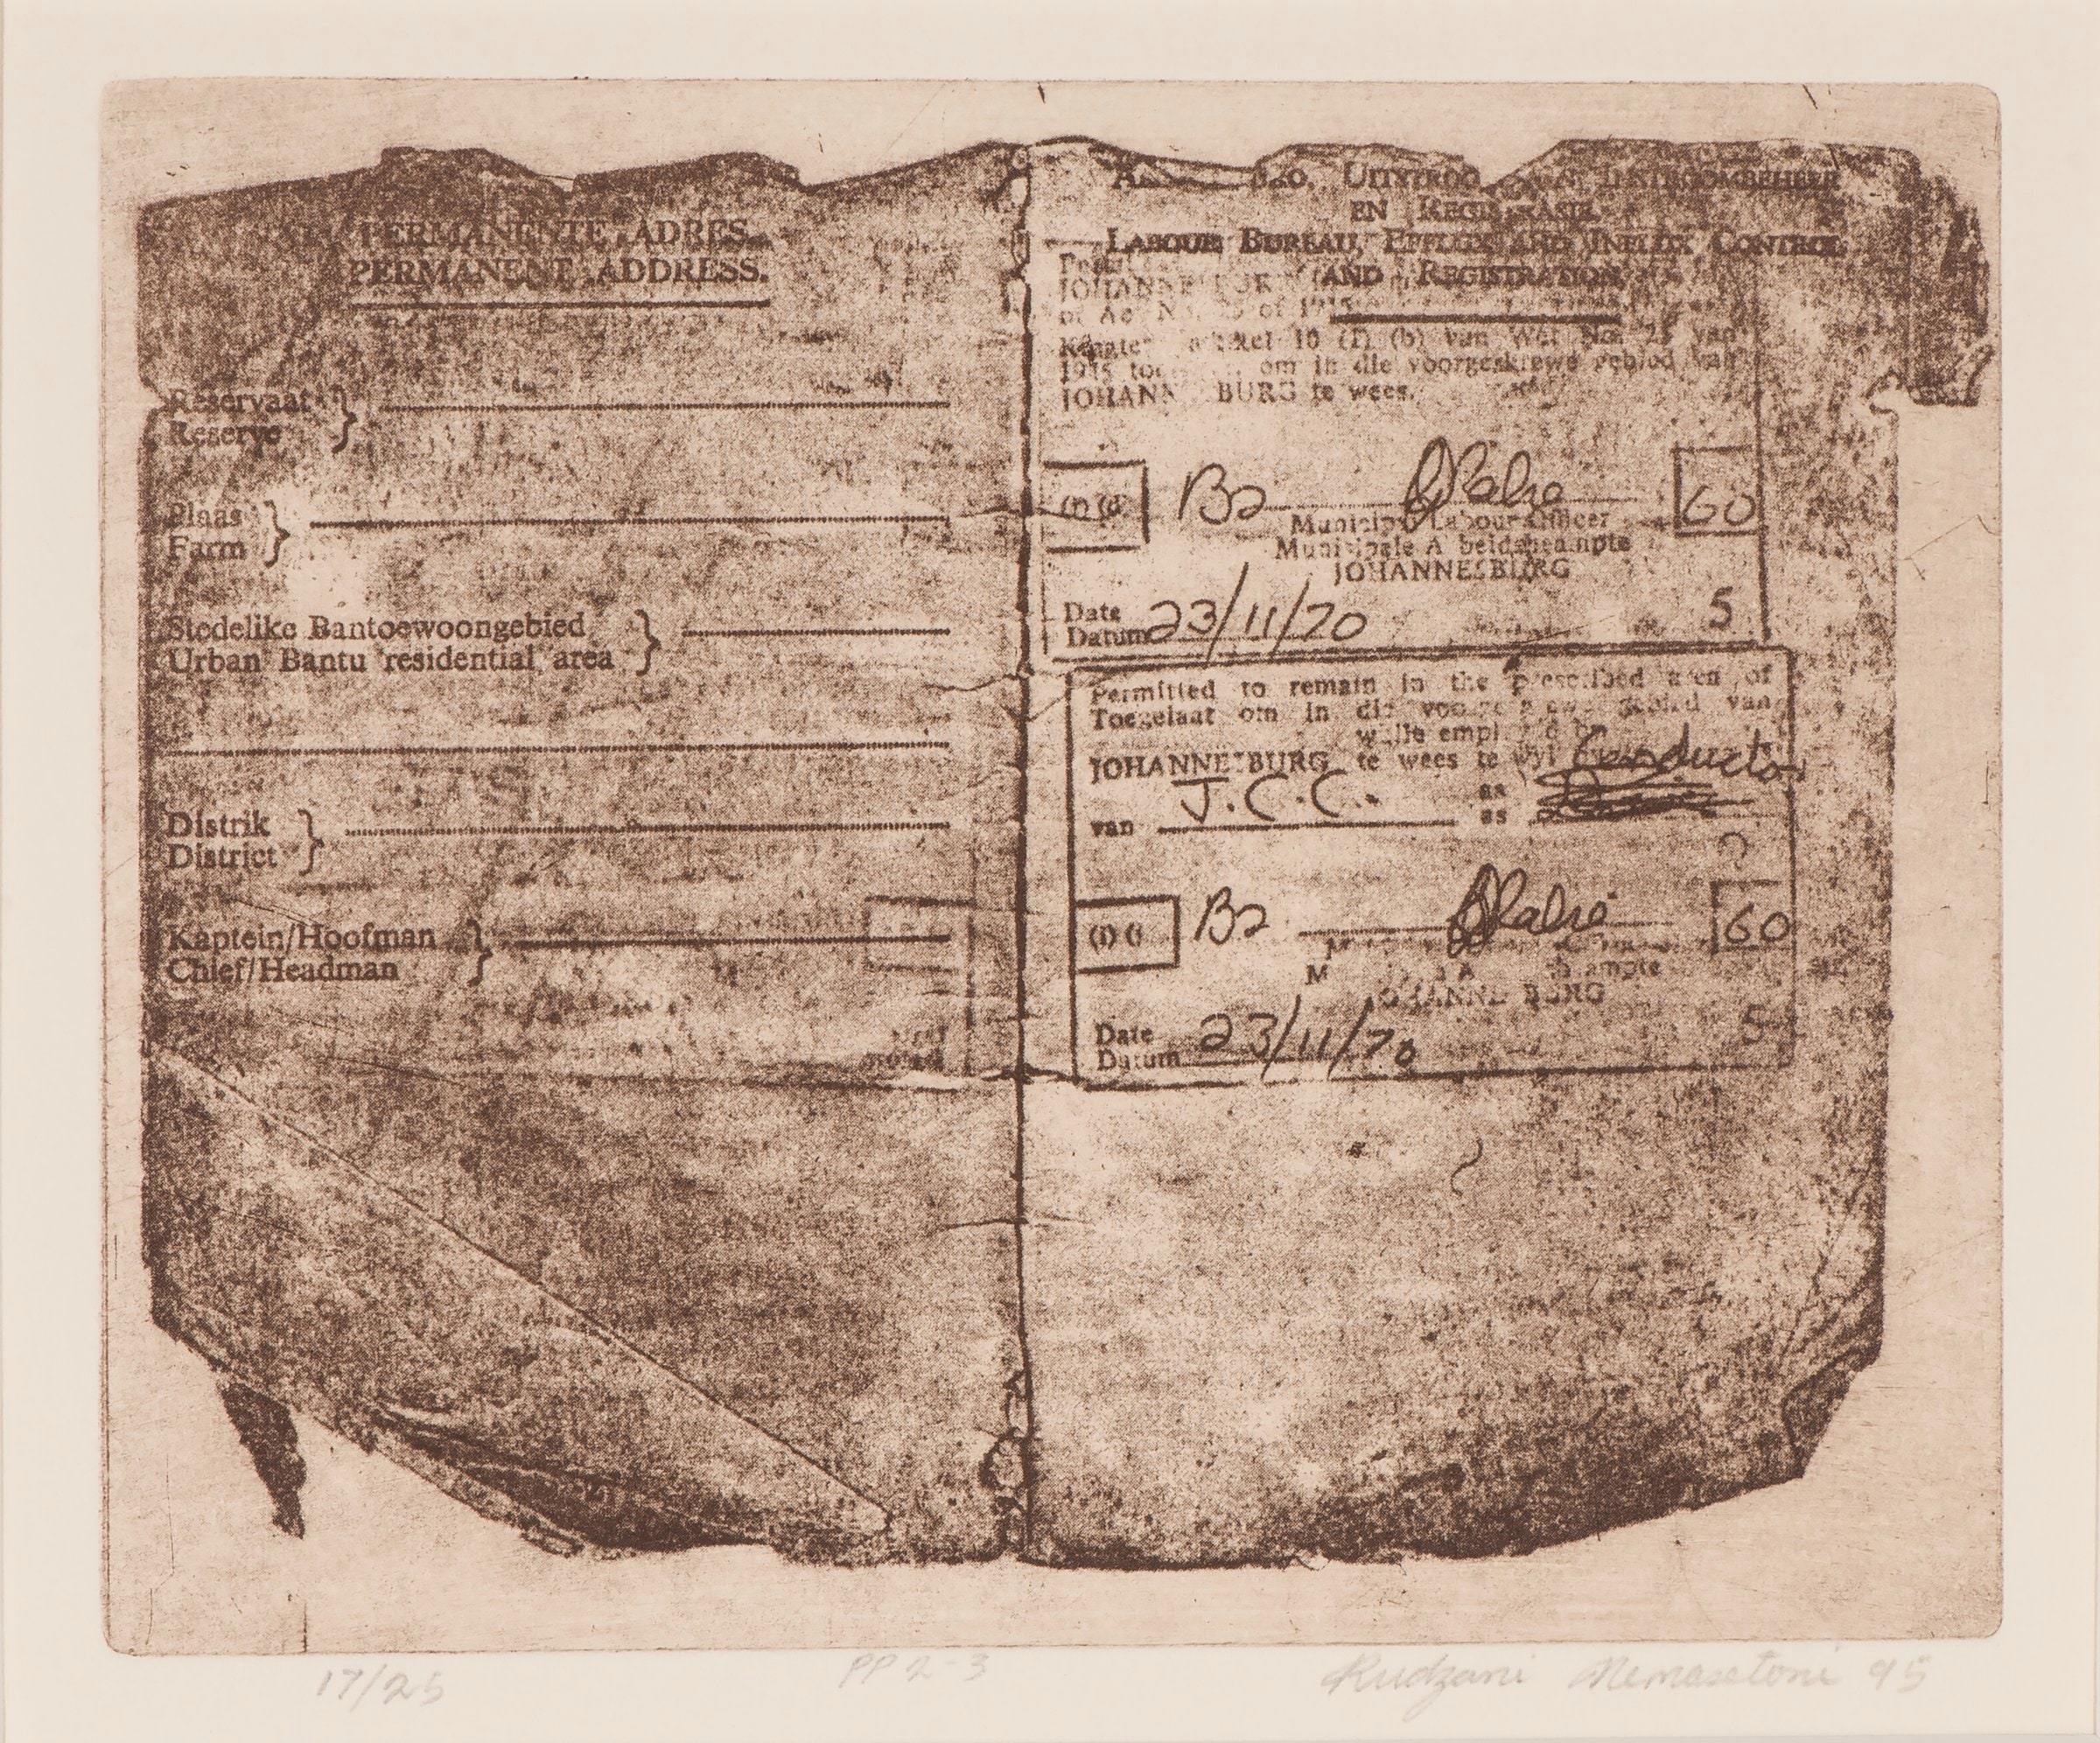 PERMANENTE ADRES.
PERMANENT ADDRESS.
Reservaat
Reserve
Plaas
Farm
Stedelike Bantoewoongebied
Urban Bantu residential area
Distrik
District
Kaptein/Hoofman
Chief/Headman
INSTROOMBEHEER
EN REGISTRASIE.
LABOUR BUREAU, EFFLUX AND INFLUX CONTROL
AND REGISTRATION
of 19
10 (1) (b) van Wet No. 25 van
1945 om in die voorgeskrewe gebied van
JOHANNESBURG te wees.
B2 60
Municipal Labour Officer
Munisipale Arbeidsbeampte
JOHANNESBURG
Date
Datum 23/11/70 5
Permitted to remain in the prescribed area of
Toegelaat om in die voorgeskrewe gebied van
while employed by
JOHANNESBURG te wees te wyl Conductor
J.C.C. as
van as
(1) B2 60
M A ampte
JOHANNESBURG
Date
Datum 23/11/70 5
17/25 PP 2-3 Rudzani Nemasetoni 95